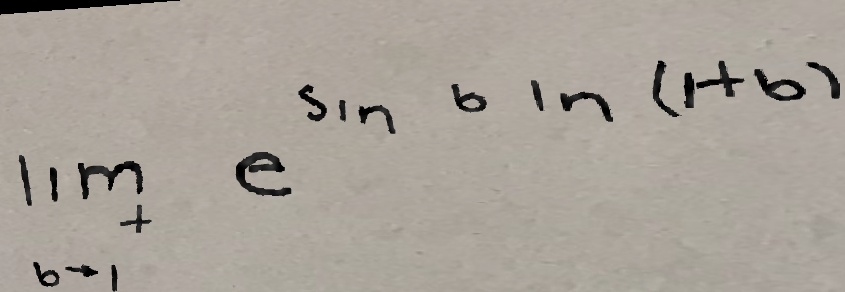 lim_{b→1^+} e^{sin b ln (1+b)}